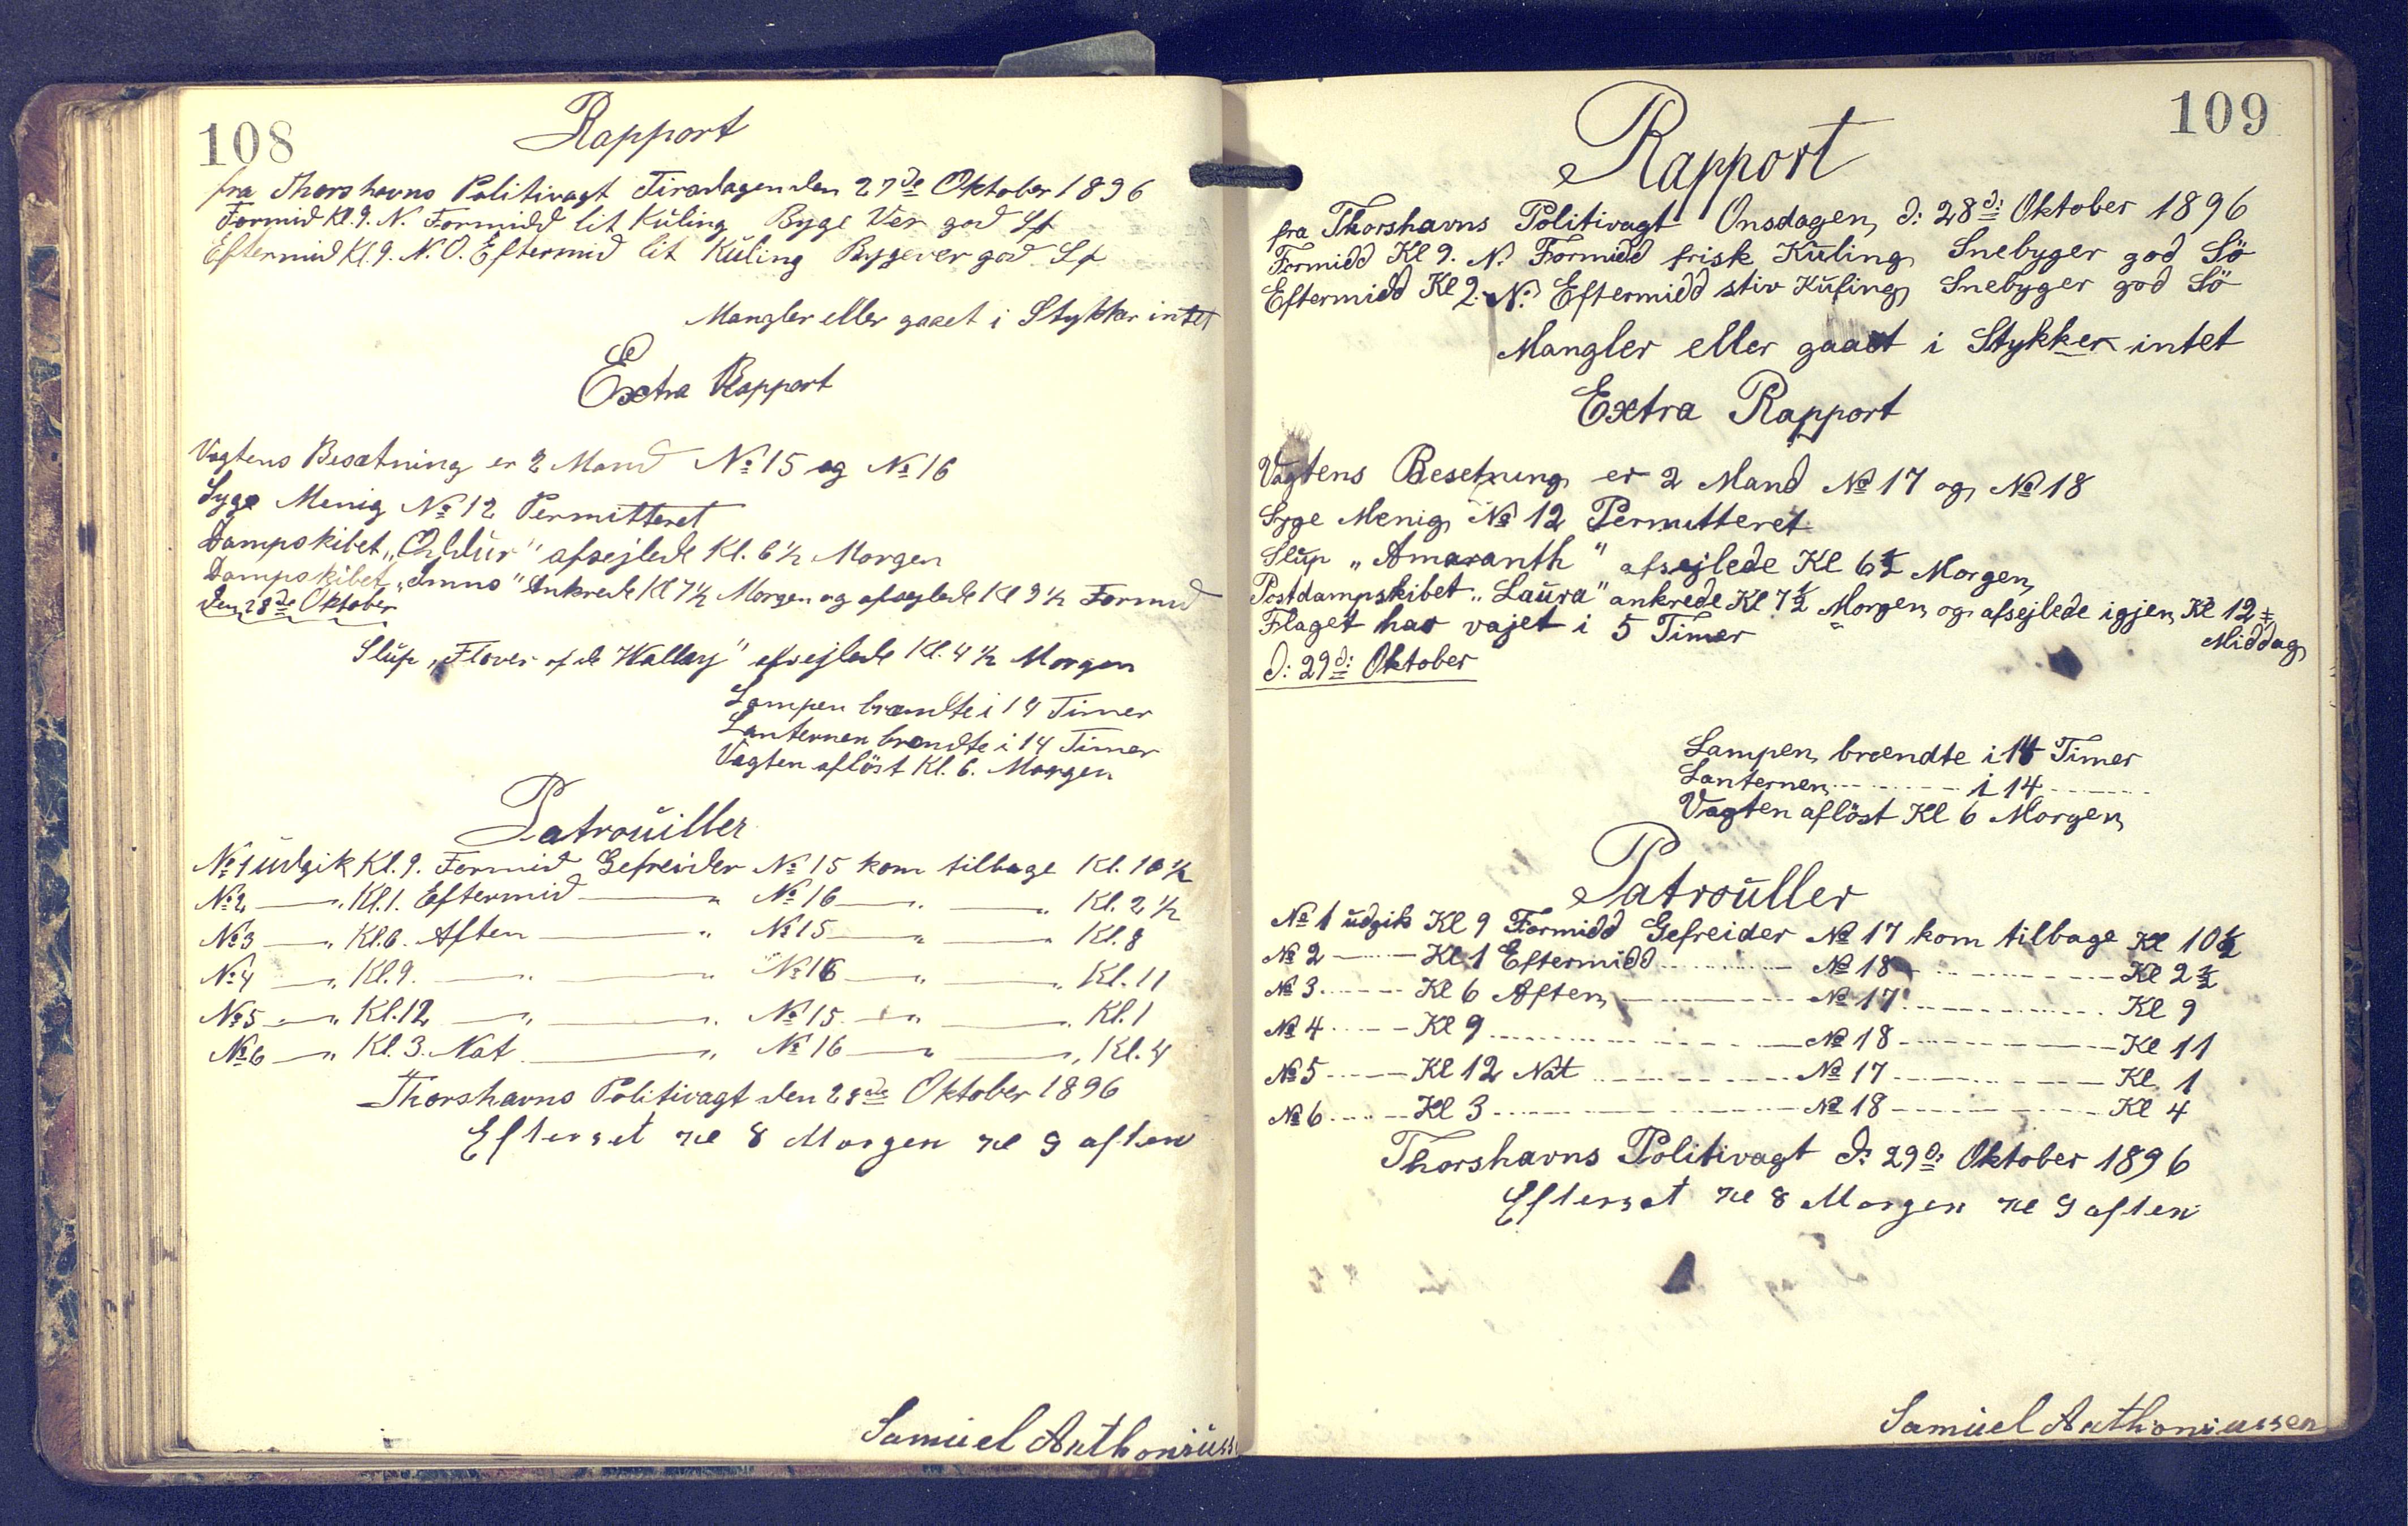 108
Rapport
fra Thorshavns Politivagt Tirsdagen den 27de Oktober 1896
Formid Kl. 9. N. Formidd lit Kuling Byge Ver god Sø
Eftermid Kl. 9. N. O. Eftermid lit Kuling Bygever god Sø
Mangler eller gaaet i Stykker intet
Extra Rapport
Vagtens Besætning er 2 Mand № 15 og № 16
Syge Menig № 12 Permitteret
Dampskibet „ " afsejlede Kl. 6 ½ Morgen
Dampskibet „Imno" Ankrede Kl 7 ½ Morgen og afsejlede Kl 9 ½ Formid
den 28de Oktober
Slup „Flover of de Walley" afsejlede Kl. 4 ½ Morgen
Lampen brændte i 14 Timer
Lanternen brændte i 14 Timer
Vagten aflöst Kl. 6. Morgen
Patrouiller
№ 1 Udgik Kl. 9. Formid Gefreider № 15 kom tilbage Kl. 10 ½
№ 2 — „ Kl. 1. Eftermid — „ № 16 — „ — „ Kl. 2 ½
№ 3 — „ Kl. 6. Aften — „ № 15 — „ — „ Kl. 8
№ 4 — „ Kl. 9. — „ — „ № 16 — „ — „ Kl. 11
№ 5 — „ Kl. 12 — „ — „ № 15 — „ — „ Kl. 1
№ 6 — „ Kl. 3. Nat — „ № 16 — „ — „ Kl. 4
Thorshavns Politivagt den 28de Oktober 1896
Efterset Kl 8 Morgen Kl 9 aften
Samuel Anthoniuss
109
Rapport
fra Thorshavns Politivagt Onsdagen, d: 28d: Oktober 1896
Formidd Kl 9. N. Formidd frisk Kuling Snebyger god Sö
Eftermidd Kl 2. N. Eftermidd stiv Kuling Snebyger god Sö
Mangler eller gaaet i Stykker intet
Extra Rapport
Vagtens Besetning er 2 Mand № 17 og № 18
Syge Menig № 12 Permitteret
Slup „Amaranth" afsejlede Kl 6 ½ Morgen
Postdampskibet „Laura" ankrede Kl 7 ½ Morgen og afsejlede igjen Kl 12 ½
Middag
Flaget har vajet i 5 Timer
d: 29d: Oktober
Lampen brændte i 14 Timer
Lanternen - - - - i 14 - - - -
Vagten aflöst Kl 6 Morgen
Patrouller
№ 1 udgik Kl 9 Formidd Gefreider № 17 kom tilbage Kl 10 ½
№ 2 - - - Kl 1 Eftermidd - - - - № 18 - - - - Kl 2 ½
№ 3 - - - Kl 6 Aften - - - - № 17 - - - - Kl 9
№ 4 - - - Kl 9 - - - - № 18 - - - - Kl 11
№ 5 - - - Kl 12 Nat - - - - № 17 - - - - Kl 1
№ 6 - - - Kl 3 - - - - № 18 - - - - Kl 4
Thorshavns Politivagt d: 29d: Oktober 1896
Efterset Kl 8 Morgen Kl 9 aften
Samuel Anthoniussen